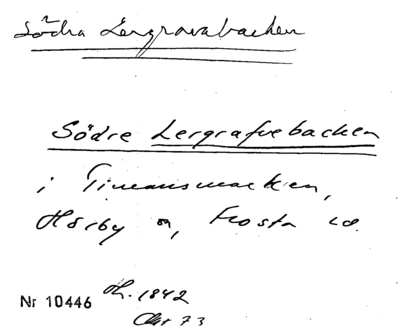 Södra Lergravabacken
Södre Lergrafvebacken
i
Hörby sn, Frosta hd.
Nr 10446 1842
73